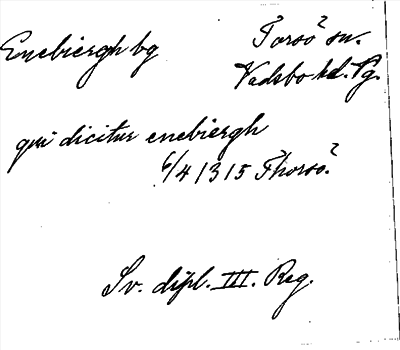 Enebiergh bg Torsö? sn.
Vadsbo hd. Vg.
qui dicitur enebiergh
6/4 1315 Thorsö?
Sv. dipl. III. Reg.